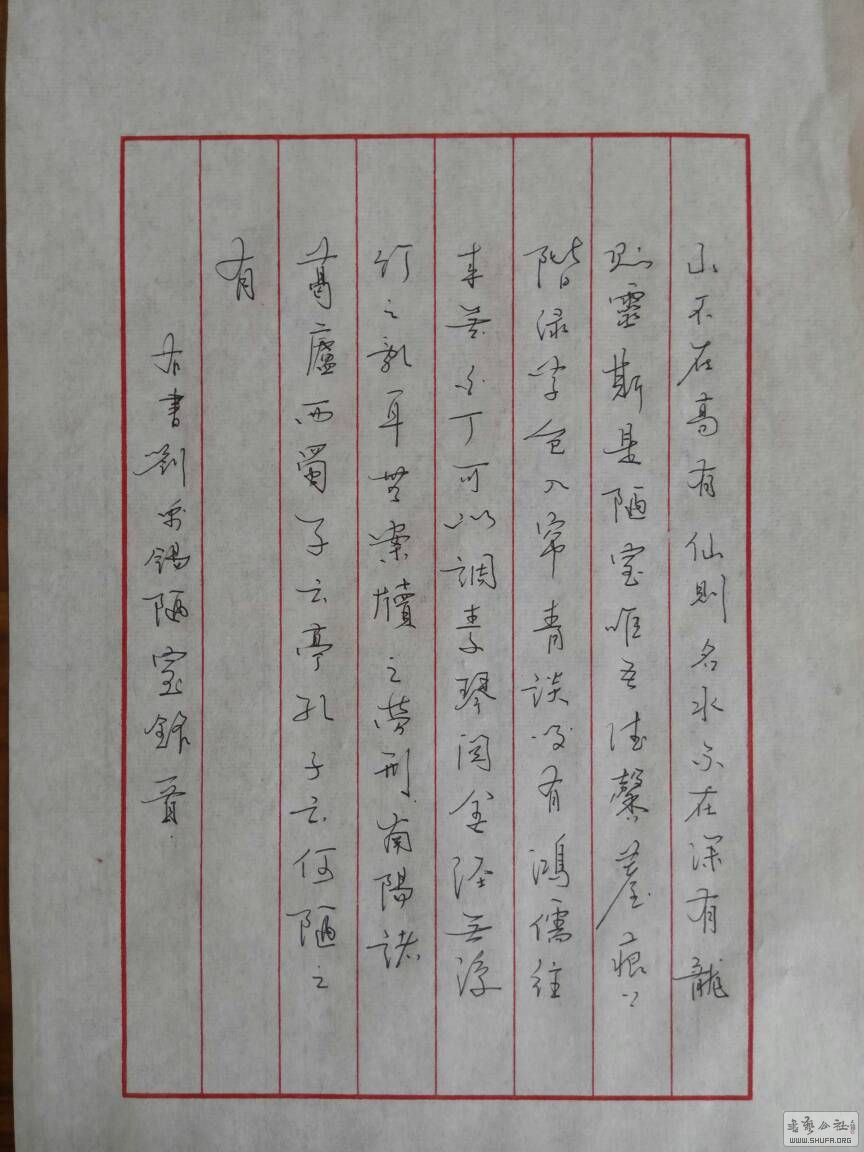 山不在高有仙則名水不在深有龍
則靈斯是陋室唯吾德馨苔痕上
階綠草色入帘青談笑有鴻儒往
來無白丁可以調素琴閱金經無絲
竹之亂耳無案牘之勞形南陽諸
葛廬西蜀子云亭孔子云何陋之
有
右書劉禹錫陋室銘首
書藝公社
WWW.SHUFA.ORG